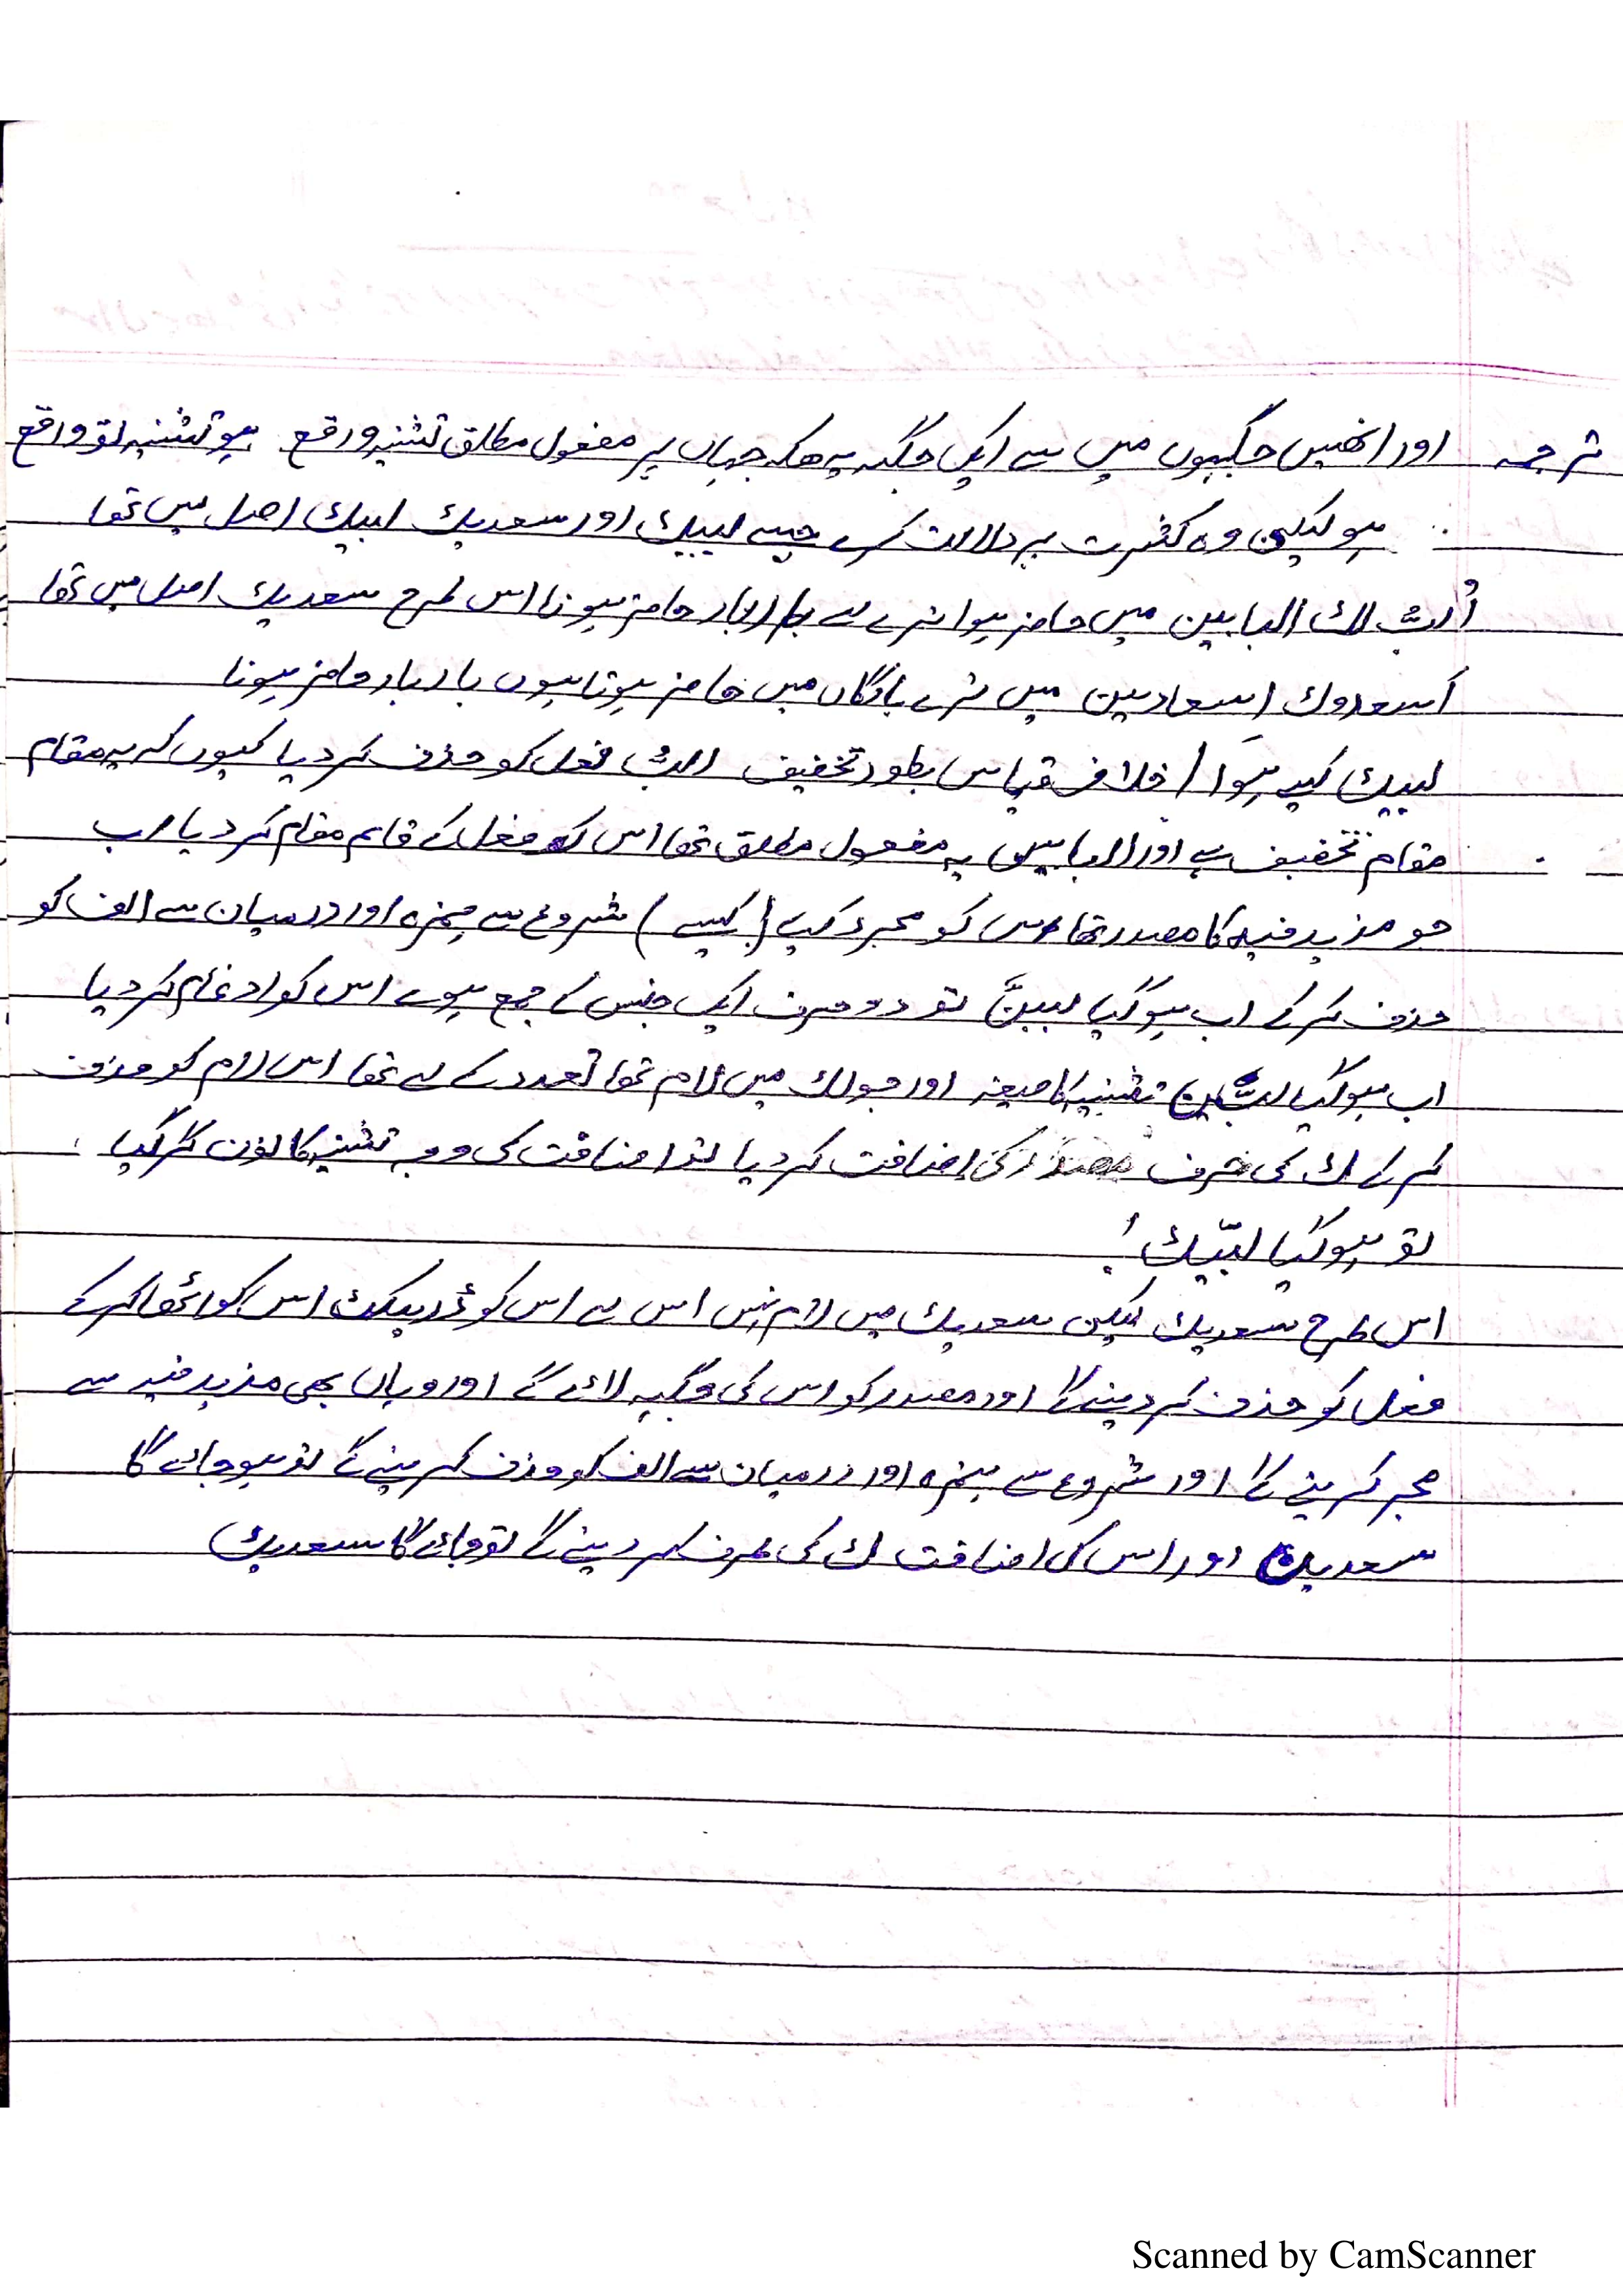 ترجمہ اور انھیں جگہوں میں سے ایک جگہ یہ ھیکہ جہاں پر مفعول مطلق تثنیہ واقع ہو تثنیہ تو واقع
ہو لیکن وہ کثرت پر دلالت کرے جیسے لبیک اور سعدیک لبیک اصل میں تھا
اُلبُّ لک البابین میں حاضر ہوا ترے لے بار بار حاضر ہونا اس طرح سعدیک اصل میں تھا
اسعدوک اسعادین میں ترے بارگاں میں حاضر ہوتا ہوں بار بار حاضر ہونا
لبیک کیسے ہوا / خلاف قیاس بطور تخفیف البُّ فعل کو حذف کر دیا کیوں کہ یہ مقام
مقام تخفیف ہے اور البابین یہ مفعول مطلق تھا اس کو فعل کے قایم مقام کر دیا اب
جو مذید فیہ کا مصدر تھا اس کو مجرد کیے (کیسے) شروع سے ہمزہ اور درمیان سے الف کو
حذف کر کے اب ہو گیا لببینَ تو دو حرف ایک جنس کے جمع ہوے اس کو ادغام کر دیا
اب ہو گیا لبَّین تثنیہ کا صیغہ اور جو لک میں لام تھا تعدد کے لے تھا اس لام کو حذف
کر کے ک کی طرف کی اضافت کر دیا تو اضافت کی وجہ تثنیہ کا نون گر گیا
تو ہو گیا لبّیک !
اس طرح سعدیک لیکن سعدیک میں لام نہیں اس لے اس کو اس کو
فعل کو حذف کر دینے گا اور مصدر کو اس کی جگہ لائے گے اور وہاں بھی مذید فیہ سے
مجرد کرینے گا اور شروع سے ہمزہ اور درمیان سے الف کو حذف کرینے گے تو ہو جاے گا
سعدین اور اس کی اضافت ک کی طرف کر دینے گے تو جاے گا سعدیک
Scanned by CamScanner